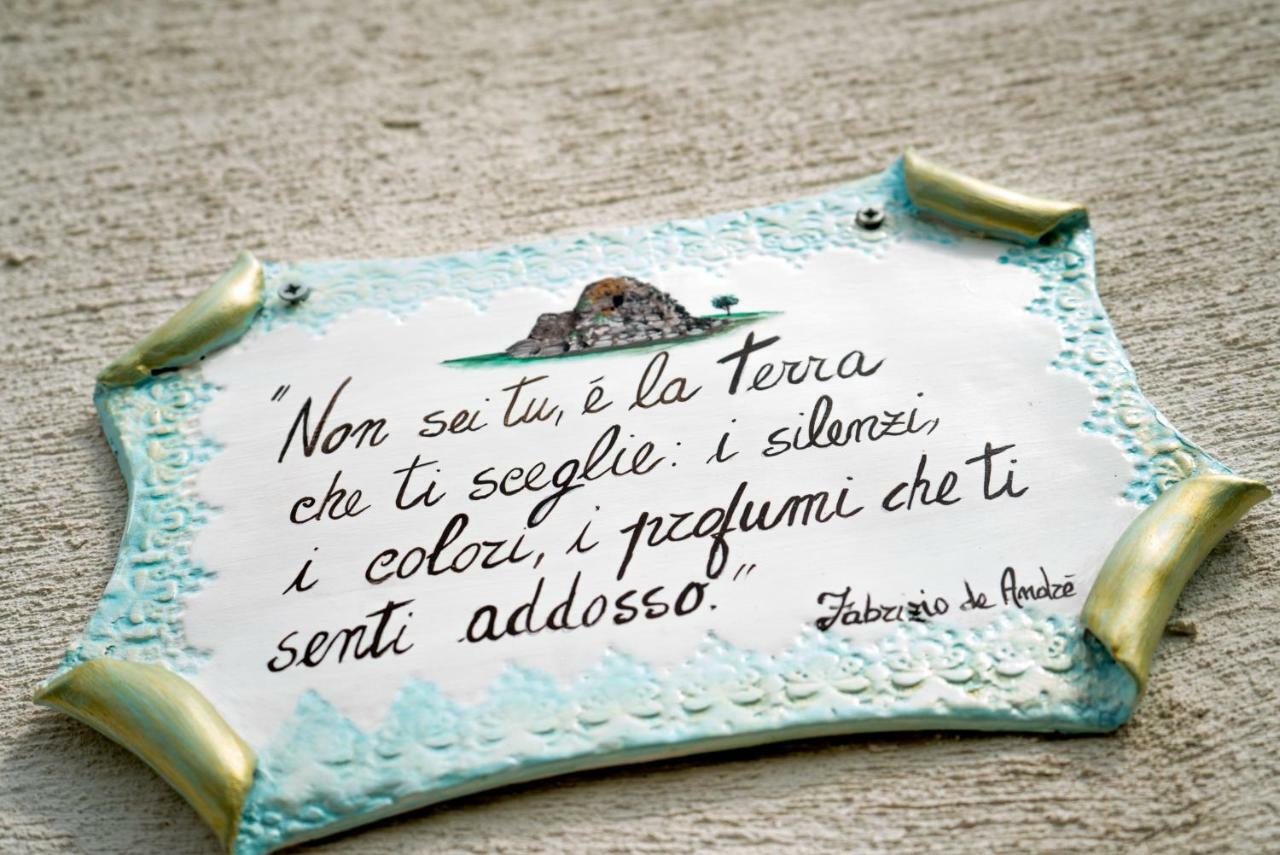 "Non sei tu, é la terra
che ti sceglie: i silenzi,
i colori, i profumi che ti
senti addosso."
Fabrizio de André